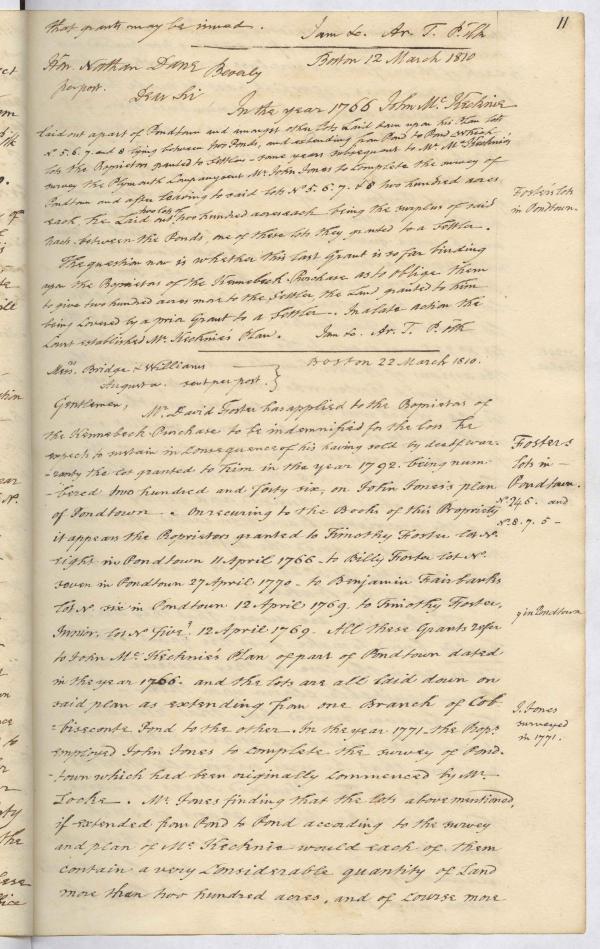 that grants may be issued. I am &c. Ar. T. P. Clk
11
Boston 12 March 1810
Hon. Nathan Dane Beverly
per post.
Dear Sir
In the year 1766 John Mc. Kechnie
laid out a part of Pondtown and amongst other lots Laid down upon his Plan lots
No. 5. 6. 7. and 8 lying between two Ponds, and extending from Pond to Pond which
lots the Propietors granted to Settlers - some years subsequent to Mr. Mc. Kechnie's
survey the Plymouth Company sent Mr. John Jones to complete the survey of
Pondtown and after leaving to said lots No. 5. 6. 7. & 8 two hundred acres
each, he Laid out two lots two hundred acres each being the surplus of said
tract between the Ponds, one of these lots they granted to a Settler.
Fosters lots
in Pondtown.
The question now is whether this last Grant is so far binding
upon the Propietors of the Kennebeck Purchase as to oblige them
to give two hundred acres more to the Settler the Land granted to him
being Covered by a prior Grant to a Settler. In a late action the
Court established Mr. Kechnie's Plan. I am &c. Ar. T. P. Clk
Boston 22 March 1810.
Messrs. Bridge & Williams
Augusta. sent per post.
Gentlemen,
Mr. David Foster has applied to the Propietors of
the Kennebeck Purchase to be indemnified for the loss he
expects to sustain in Consequence of his having sold by deed of war-
-ranty the lot granted to him in the year 1792. being num-
-bered two hundred and forty six, on John Jones's plan
of Pondtown. On recuring to the Books of this Propriety
it appears the Propietors granted to Timothy Foster lot No.
eight in Pondtown 11 April 1766 - to Billy Foster lot No.
seven in Pondtown 27 April 1770 - to Benjamin Fairbanks
lot No. six in Pondtown 12 April 1769. to Timothy Foster,
Junior. lot No. five 12 April 1769. All these Grants refer
to John Mc. Kechnie's Plan of part of Pondtown dated
in the year 1766. and the lots are all laid down on
said plan as extending from one Branch of Cob-
-bisconte Pond to the other. In the year 1771 the Props.
employed John Jones to complete the survey of Pond-
-town which had been originally Commenced by Mr.
Locke. Mr. Jones finding that the lots above mentioned,
if extended from Pond to Pond according to the survey
and plan of Mc. Kechnie would each of them
contain a very Considerable quantity of Land
more than two hundred acres, and of Course more
Fosters
lots in
Pondtown.
No. 246. and
No. 8. 7. 5 -
in Pondtown
J. Jones
surveyed
in 1771.